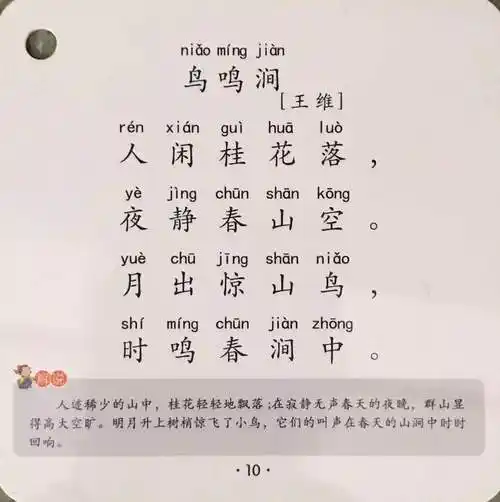 niǎo míng jiàn
鸟鸣涧
[王维]
rén xián guì huā luò
人闲桂花落，
yè jìng chūn shān kōng
夜静春山空。
yuè chū jīng shān niǎo
月出惊山鸟，
shí míng chūn jiàn zhōng
时鸣春涧中。
解说
人迹稀少的山中，桂花轻轻地飘落;在寂静无声春天的夜晚，群山显
得高大空旷。明月升上树梢惊飞了小鸟，它们的叫声在春天的山涧中时时
回响。
·10·